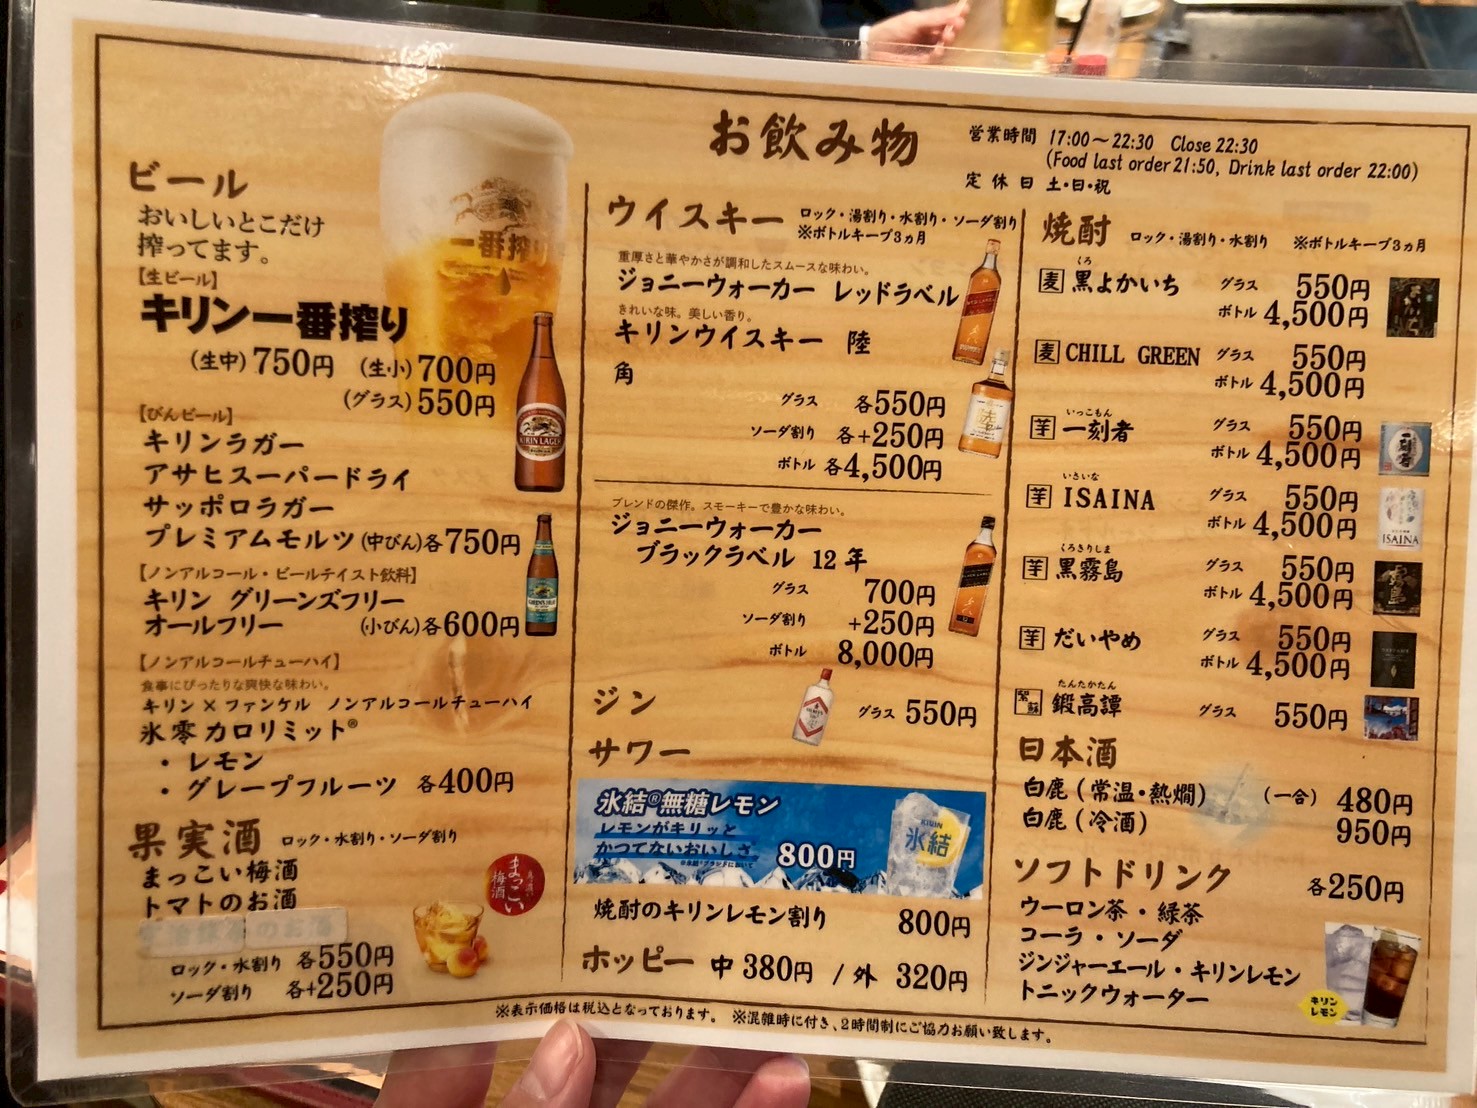 お飲み物
営業時間 17:00～22:30 Close 22:30
(Food last order 21:50, Drink last order 22:00)
定休日 土・日・祝
ビール
おいしいとこだけ
搾ってます。
【生ビール】
キリン一番搾り
(生中) 750円 (生小) 700円
(グラス) 550円
【びんビール】
キリンラガー
アサヒスーパードライ
サッポロラガー
プレミアムモルツ (中びん) 各750円
【ノンアルコール・ビールテイスト飲料】
キリン グリーンズフリー
オールフリー (小びん) 各600円
【ノンアルコールチューハイ】
食事にぴったりな爽快な味わい。
キリン×ファンケル ノンアルコールチューハイ
氷零カロリミット®
・レモン
・グレープフルーツ 各400円
果実酒 ロック・水割り・ソーダ割り
まっこい梅酒
トマトのお酒
のお酒
ロック・水割り 各550円
ソーダ割り 各+250円
まっこい
梅酒
一番搾り
KIRIN LAGER
ウイスキー ロック・湯割り・水割り・ソーダ割り
※ボトルキープ3ヵ月
重厚さと華やかさが調和したスムースな味わい。
ジョニーウォーカー レッドラベル
きれいな味。美しい香り。
キリンウイスキー 陸
角
グラス 各550円
ソーダ割り 各+250円
ボトル 各4,500円
陸
ブレンドの傑作。スモーキーで豊かな味わい。
ジョニーウォーカー
ブラックラベル 12年
グラス 700円
ソーダ割り +250円
ボトル 8,000円
ジン グラス 550円
サワー
氷結®無糖レモン
レモンがキリッと
かつてないおいしさ
800円
KIRIN
氷結
焼酎のキリンレモン割り 800円
ホッピー 中 380円 / 外 320円
焼酎 ロック・湯割り・水割り ※ボトルキープ3ヵ月
くろ
麦 黒よかいち グラス 550円
ボトル 4,500円
麦 CHILL GREEN グラス 550円
ボトル 4,500円
いっこもん
芋 一刻者 グラス 550円
ボトル 4,500円
一刻者
いさいな
芋 ISAINA グラス 550円
ボトル 4,500円
ISAINA
くろきりしま
芋 黒霧島 グラス 550円
ボトル 4,500円
霧島
芋 だいやめ グラス 550円
ボトル 4,500円
たんたかたん
紫蘇 鍛高譚 グラス 550円
日本酒
白鹿 (常温・熱燗) (一合) 480円
白鹿 (冷酒) 950円
ソフトドリンク 各250円
ウーロン茶・緑茶
コーラ・ソーダ
ジンジャーエール・キリンレモン
トニックウォーター
キリン
レモン
※表示価格は税込となっております。 ※混雑時に付き、2時間制にご協力お願い致します。